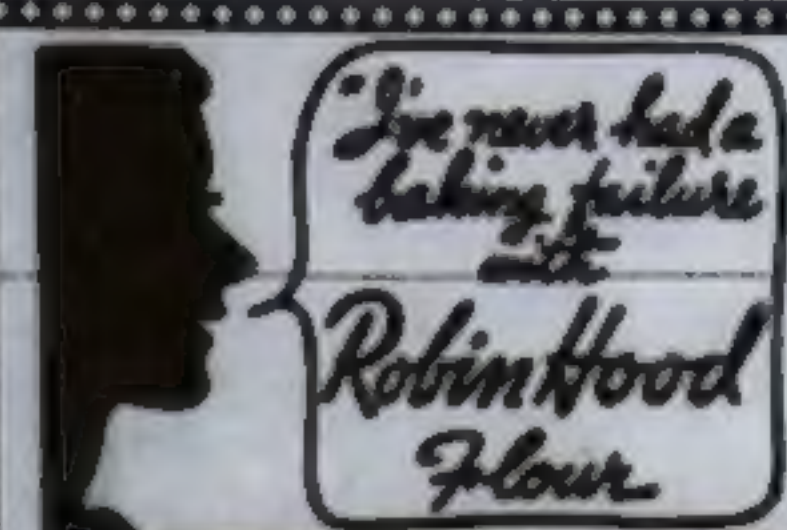 "I've never had a
baking failure
with
Robin Hood
Flour